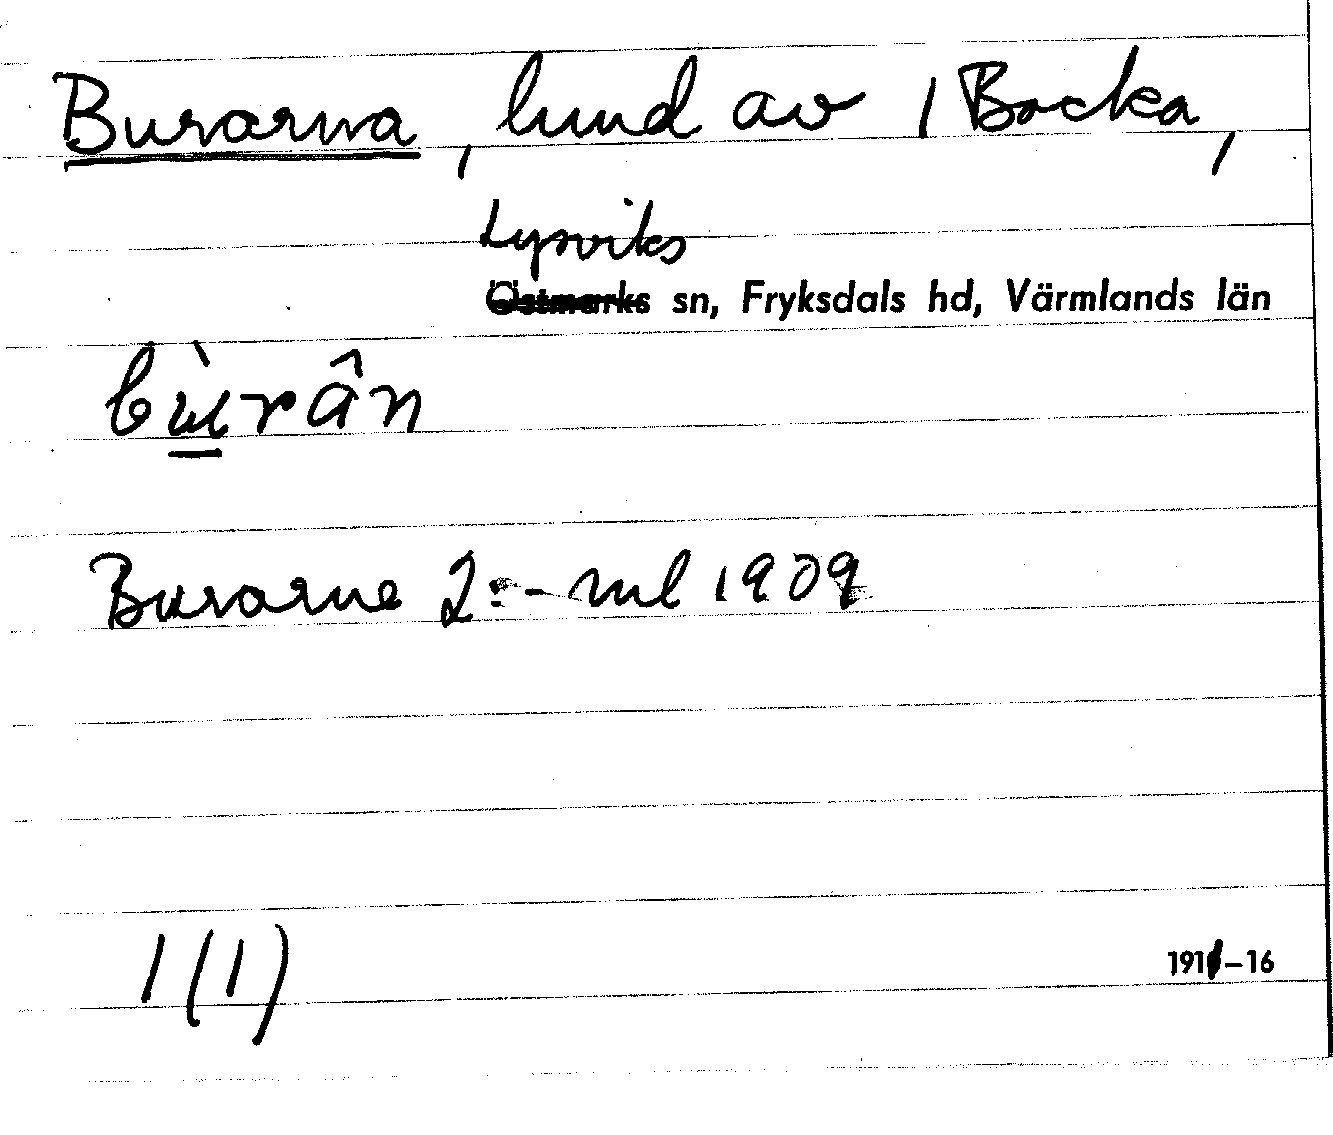 Burarna, lund av 1 Backa,
Lysviks
Östmarks sn, Fryksdals hd, Värmlands län
bùrân
Burarne 2:- ml 1909
1 (1)
1911–16